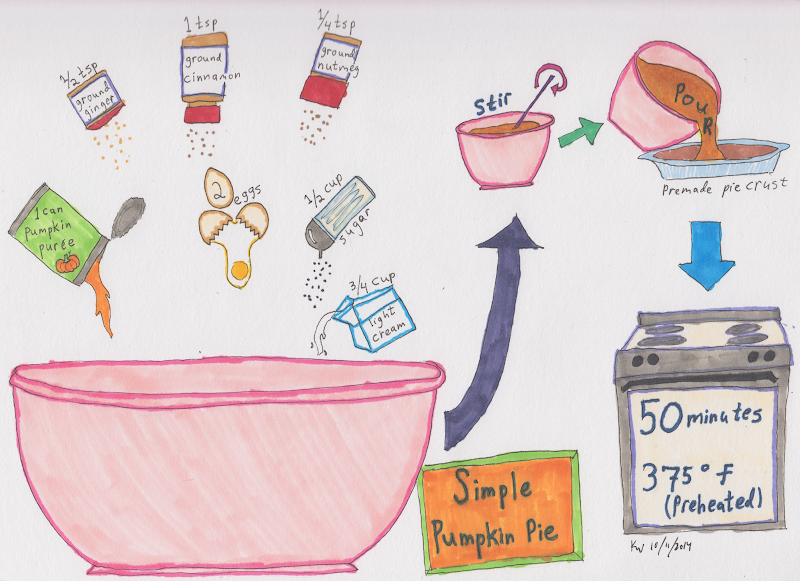 1/2 tsp
ground
ginger
1 tsp
ground
cinnamon
1/4 tsp
ground
nutmeg
1 can
pumpkin
purée
2 eggs
1/2 cup
sugar
3/4 cup
light
cream
Stir
Pour
Premade pie crust
50 minutes
375° f
(Preheated)
Simple
Pumpkin Pie
KW 10/11/2014